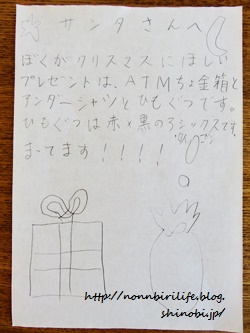 サンタさんへ
ぼくがクリスマスにほしい
プレゼントは、ATMちょ金箱と
アンダーシャツとひもぐつです。
ひもぐつは赤×黒の
まってます！！！！
http://nonnbirilife.blog.
shinobi.jp/